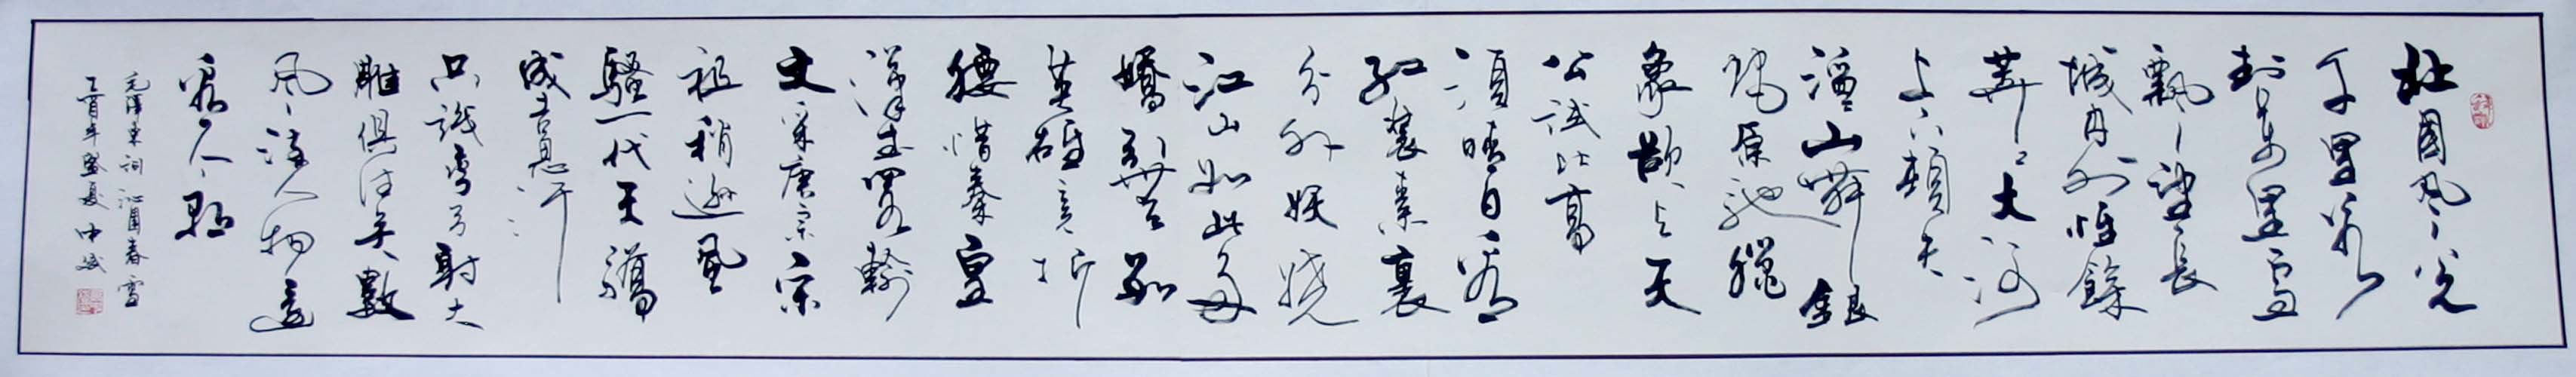 北國風光
千里冰
封萬里雪
飄望長
城內外惟餘
莽莽大河
上下頓失
滔滔山舞銀
蛇原馳臘
象欲與天
公試比高
須晴日看
紅裝素裹
分外妖嬈
江山如此多
嬌引無數
英雄競折
腰惜秦皇
漢武略輸
文采唐宗宋
祖稍遜風
騷一代天驕
成吉思汗
只識彎弓射大
雕俱往矣數
風流人物還
看今朝
毛澤東詞沁園春雪
乙酉年盛夏中斌